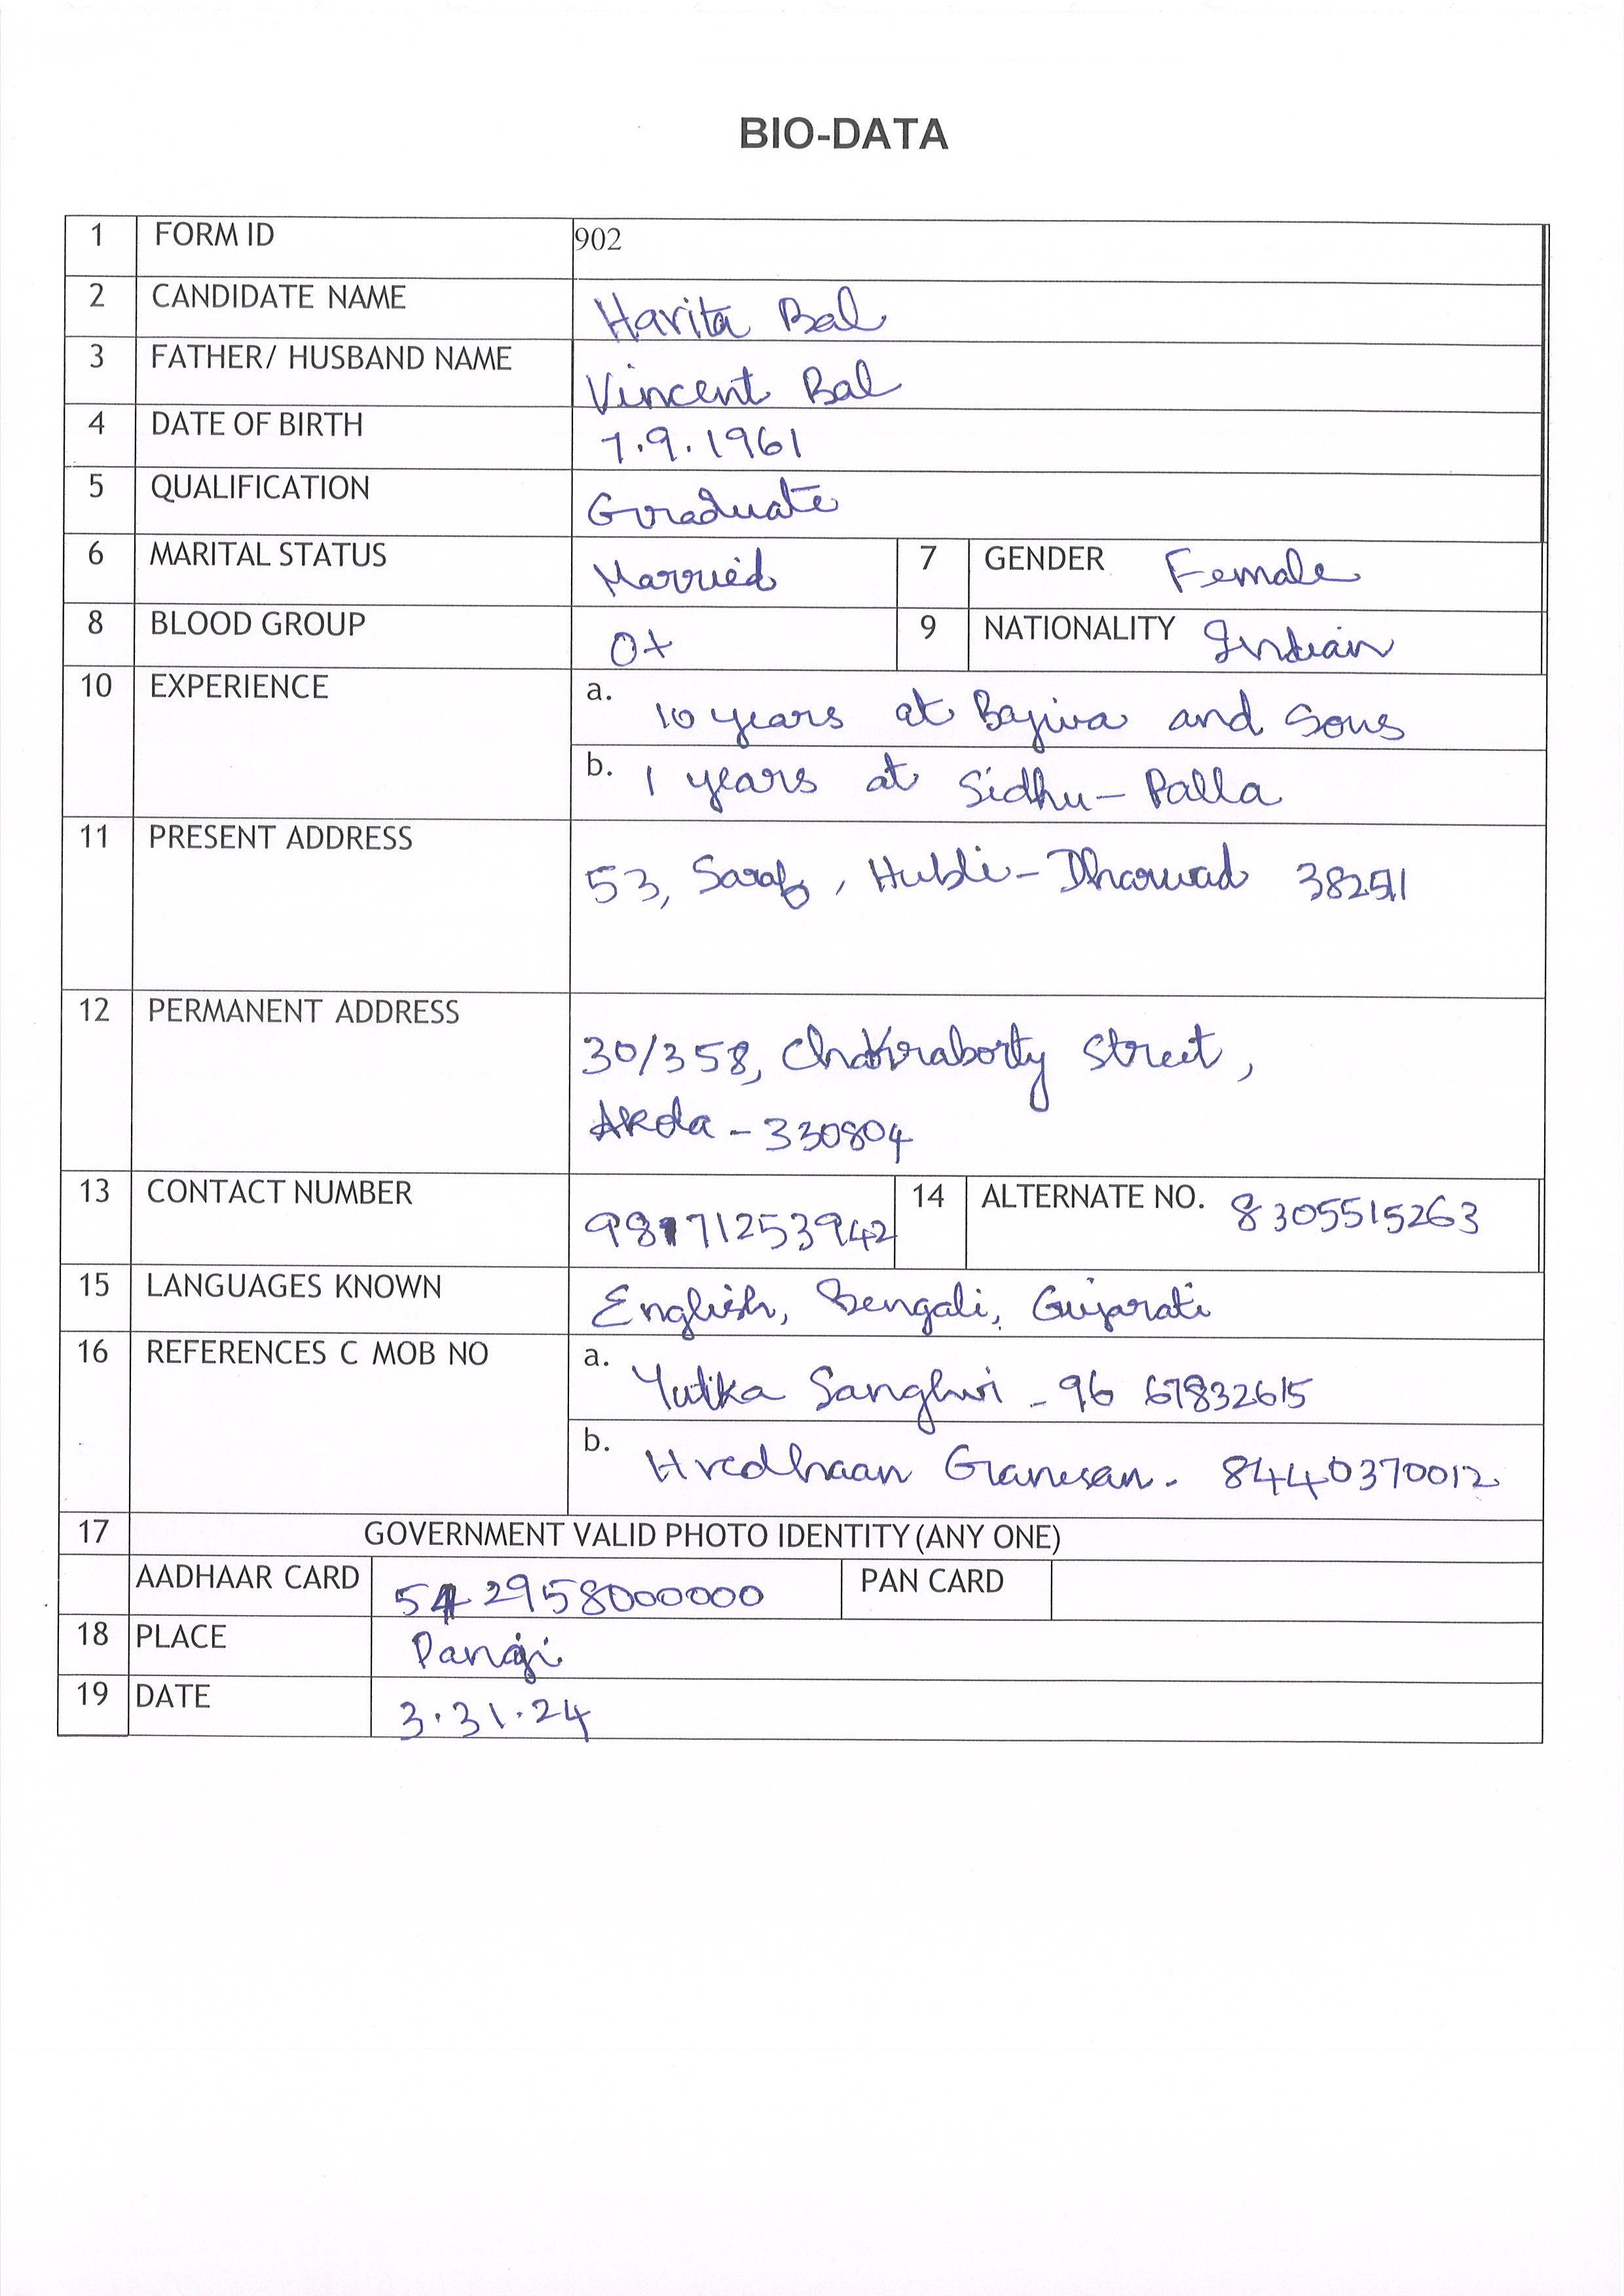 BIO-DATA
1 FORM ID 902
2 CANDIDATE NAME Harita Bal
3 FATHER/ HUSBAND NAME Vincent Bal
4 DATE OF BIRTH 7.9.1961
5 QUALIFICATION Graduate
6 MARITAL STATUS Married 7 GENDER Female
8 BLOOD GROUP O+ 9 NATIONALITY Indian
10 EXPERIENCE a. 10 years at Bajwa and Sons
b. 1 years at Sidhu-Palla
11 PRESENT ADDRESS
53, Saraf, Hubli-Dharwad 382511
12 PERMANENT ADDRESS
30/358, Chakraborty Street,
Akola - 330804
13 CONTACT NUMBER 98171253942 14 ALTERNATE NO. 8305515263
15 LANGUAGES KNOWN English, Bengali, Gujarati
16 REFERENCES C MOB NO a. Yutika Sanghvi - 96 67832615
b. Hredhaan Ganesan. 84440370012
17 GOVERNMENT VALID PHOTO IDENTITY (ANY ONE)
AADHAAR CARD 542958000000 PAN CARD
18 PLACE
19 DATE 3.31.24